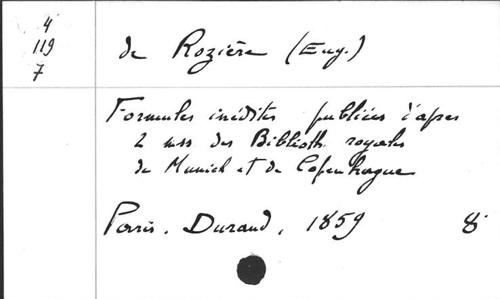 4
119
7
de Rozière (Eug.)
Formules inédites publiées d'apres
2 mss des Biblioth. royales
de Munich et de Copenhague
Paris. Durand, 1859 8°